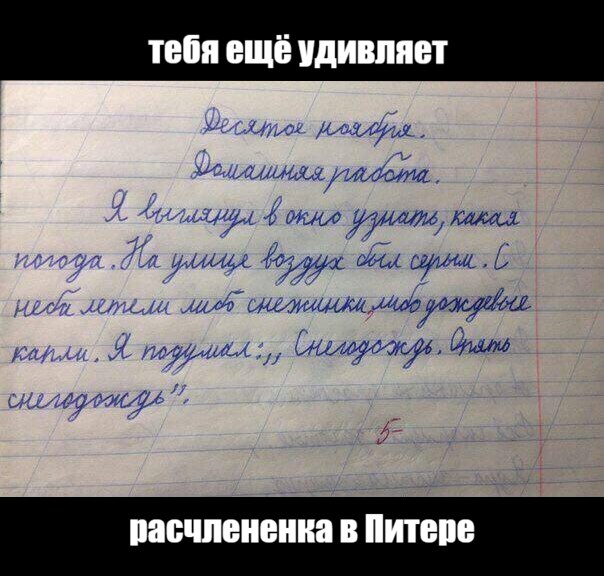 тебя ещё удивляет
Десятое ноября.
Домашняя работа.
Я выглянул в окно узнать, какая
погода. На улице воздух был серым. С
неба летели либо снежинки, либо дождевые
капли. Я подумал: ,, Снегодождь. Опять
снегодождь".
5-
расчлененка в Питере